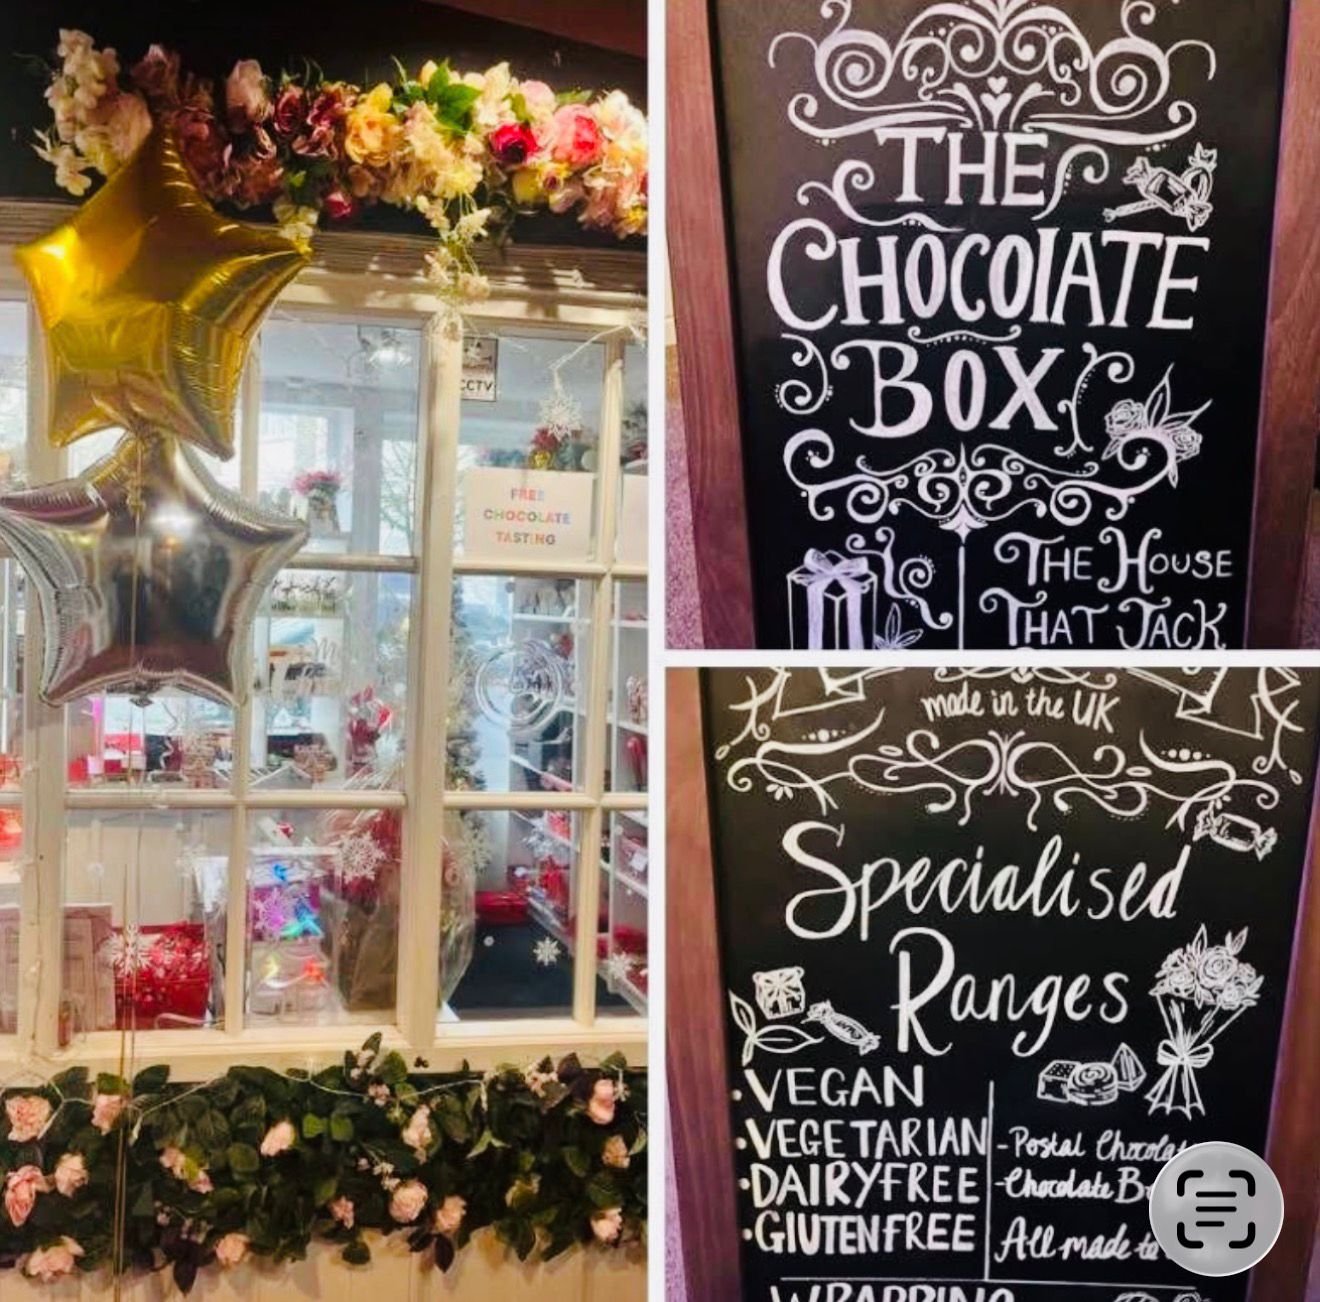 CCTV
FREE
CHOCOLATE
TASTING
THE
CHOCOlATE
BOX
THE HOUSE
THAT JACK
made in the UK
Specialised
Ranges
·VEGAN
·VEGETARIAN
·DAIRYFREE
·GlUTENFREE
-Postal Chocolat
-Chocolate B
All made to
WRAPPING